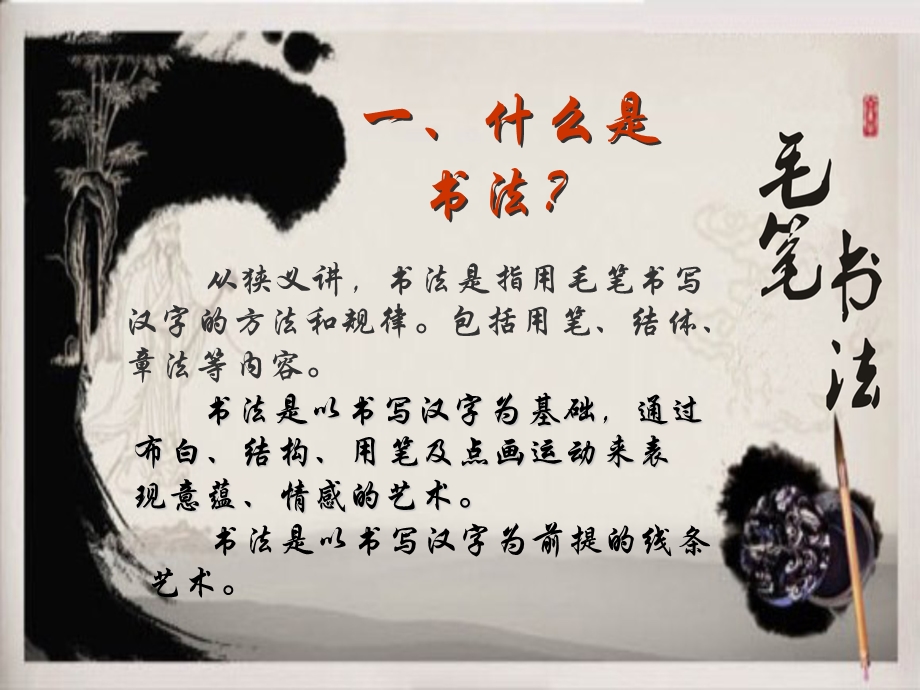 一、什么是
书法？
从狭义讲，书法是指用毛笔书写
汉字的方法和规律。包括用笔、结体、
章法等内容。
书法是以书写汉字为基础，通过
布白、结构、用笔及点画运动来表
现意蕴、情感的艺术。
书法是以书写汉字为前提的线条
艺术。
毛笔
书法